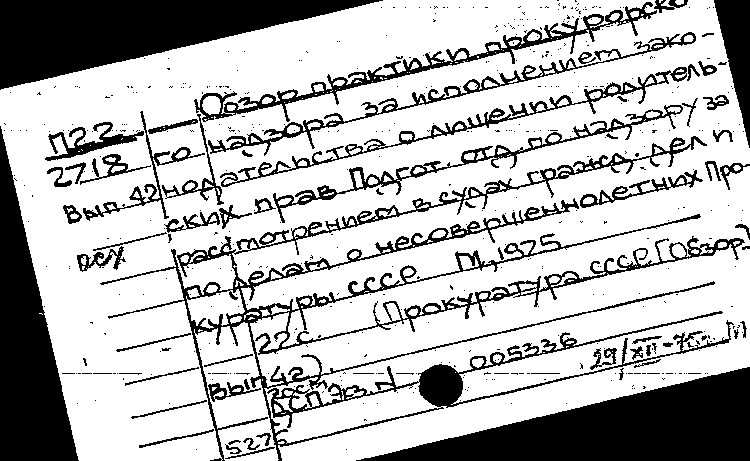 Обзор практики прокурорско
П22
2718 го надзора за исполнением зако-
Вып.42 нодательства о лишении родитель-
ских прав Подгот. отд. по надзору за
осх рассмотрением в судах гражд. дел и
по делам о несовершеннолетних Про-
куратуры СССР М., 1975.
22 с. (Прокуратура СССР. [Обзор]
Вып 42).
ДСП. Экз. N 005336 29/XII-75г. М
5275